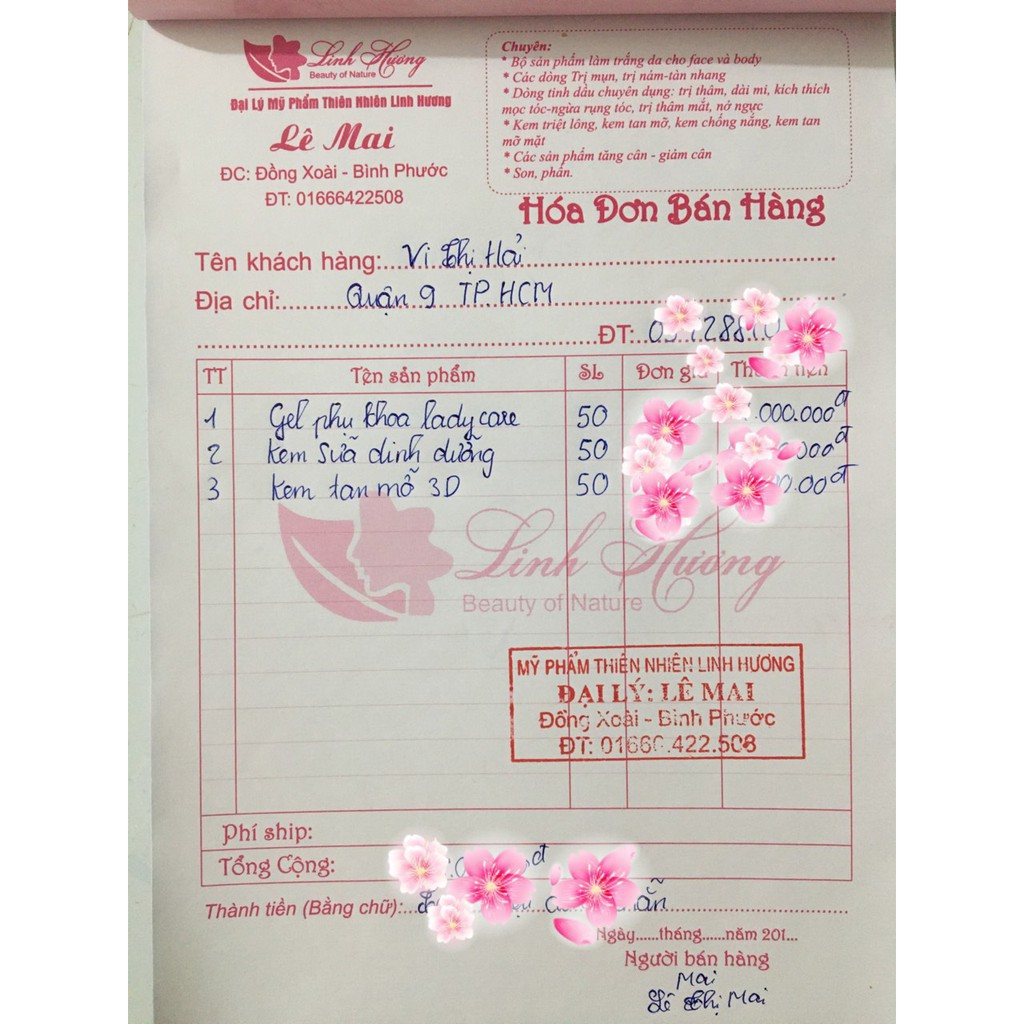 Linh Hương
Beauty of Nature
Đại Lý Mỹ Phẩm Thiên Nhiên Linh Hương
Lê Mai
ĐC: Đồng Xoài - Bình Phước
ĐT: 01666422508
Chuyên:
* Bộ sản phẩm làm trắng da cho face và body
* Các dòng Trị mụn, trị nám-tàn nhang
* Dòng tinh dầu chuyên dụng: trị thâm, dài mi, kích thích
mọc tóc-ngừa rụng tóc, trị thâm mắt, nở ngực
* Kem triệt lông, kem tan mỡ, kem chống nắng, kem tan
mỡ mặt
* Các sản phẩm tăng cân - giảm cân
* Son, phấn.
Hóa Đơn Bán Hàng
Tên khách hàng: Vi Thị Hải
Địa chỉ: Quận 9 TP. HCM
ĐT:
TT Tên sản phẩm SL Đơn giá Thành tiền
1 Gel phụ khoa lady care 50 .000.000đ
2 Kem Sữa dinh dưỡng 50 000đ
3 Kem tan mỡ 3D 50 00.00đ
Linh Hương
Beauty of Nature
MỸ PHẨM THIÊN NHIÊN LINH HƯƠNG
ĐẠI LÝ: LÊ MAI
Đồng Xoài - Bình Phước
ĐT: 01666.422.508
Phí ship:
Tổng Cộng: đ
Thành tiền (Bằng chữ): chẵn
Ngày......tháng......năm 201...
Người bán hàng
Mai
Lê Thị Mai